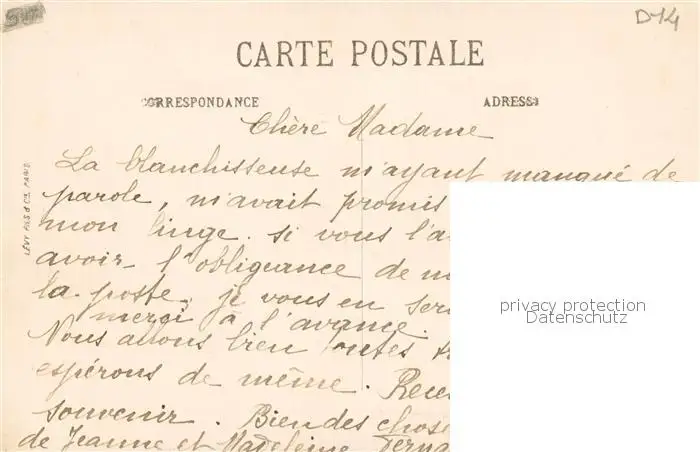 D14
CARTE POSTALE
CORRESPONDANCE
ADRESSE
Chère Madame
La blanchisseuse m'ayant manqué de
parole, m'avait promis
mon linge. si vous l'a
avoir l'obligeance de m
la poste, je vous en ser
merci à l'avance.
Nous allons bien toutes
espérons de même. Rece
souvenir. Bien des chos
de Jeanne et Madeleine
LÉVY FILS & CIE, PARIS
privacy protection
Datenschutz